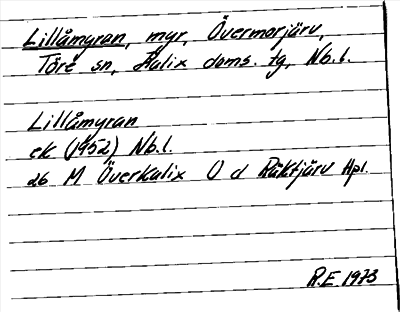 Lillåmyran, myr, Övermorjärv,
Töre sn, Kalix doms. tg, Nb. l.
Lillåmyran
ek (1952) Nb. l.
26 M Överkalix O d Räktjärv Hpl.
R.E. 1973